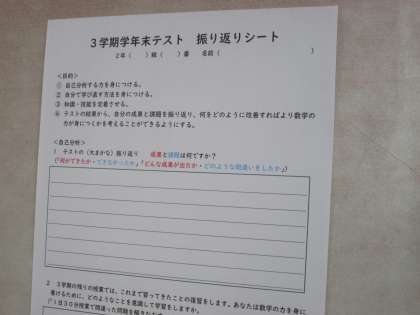 3学期学年末テスト　振り返りシート
2年（　　）組（　　）番　名前（　　　　　　　　　　）
＜目的＞
① 自己分析する力を身につける。
② 自分で学び直す方法を身につける。
③ 知識・技能を定着させる。
④ テストの結果から、自分の成果と課題を振り返り、何をどのように改善すればより数学の
力が身につくかを考えることができるようにする。
＜自己分析＞
1　テストの（大まかな）振り返り　　成果と課題は何ですか？
（「何ができたか・できなかったか」「どんな成果が出たか・どのような間違いをしたか」）
2　3学期の残りの授業では、これまで習ってきたことの復習をします。あなたは数学の力を身に
着けるために、どのようなことを意識して学習をしますか。